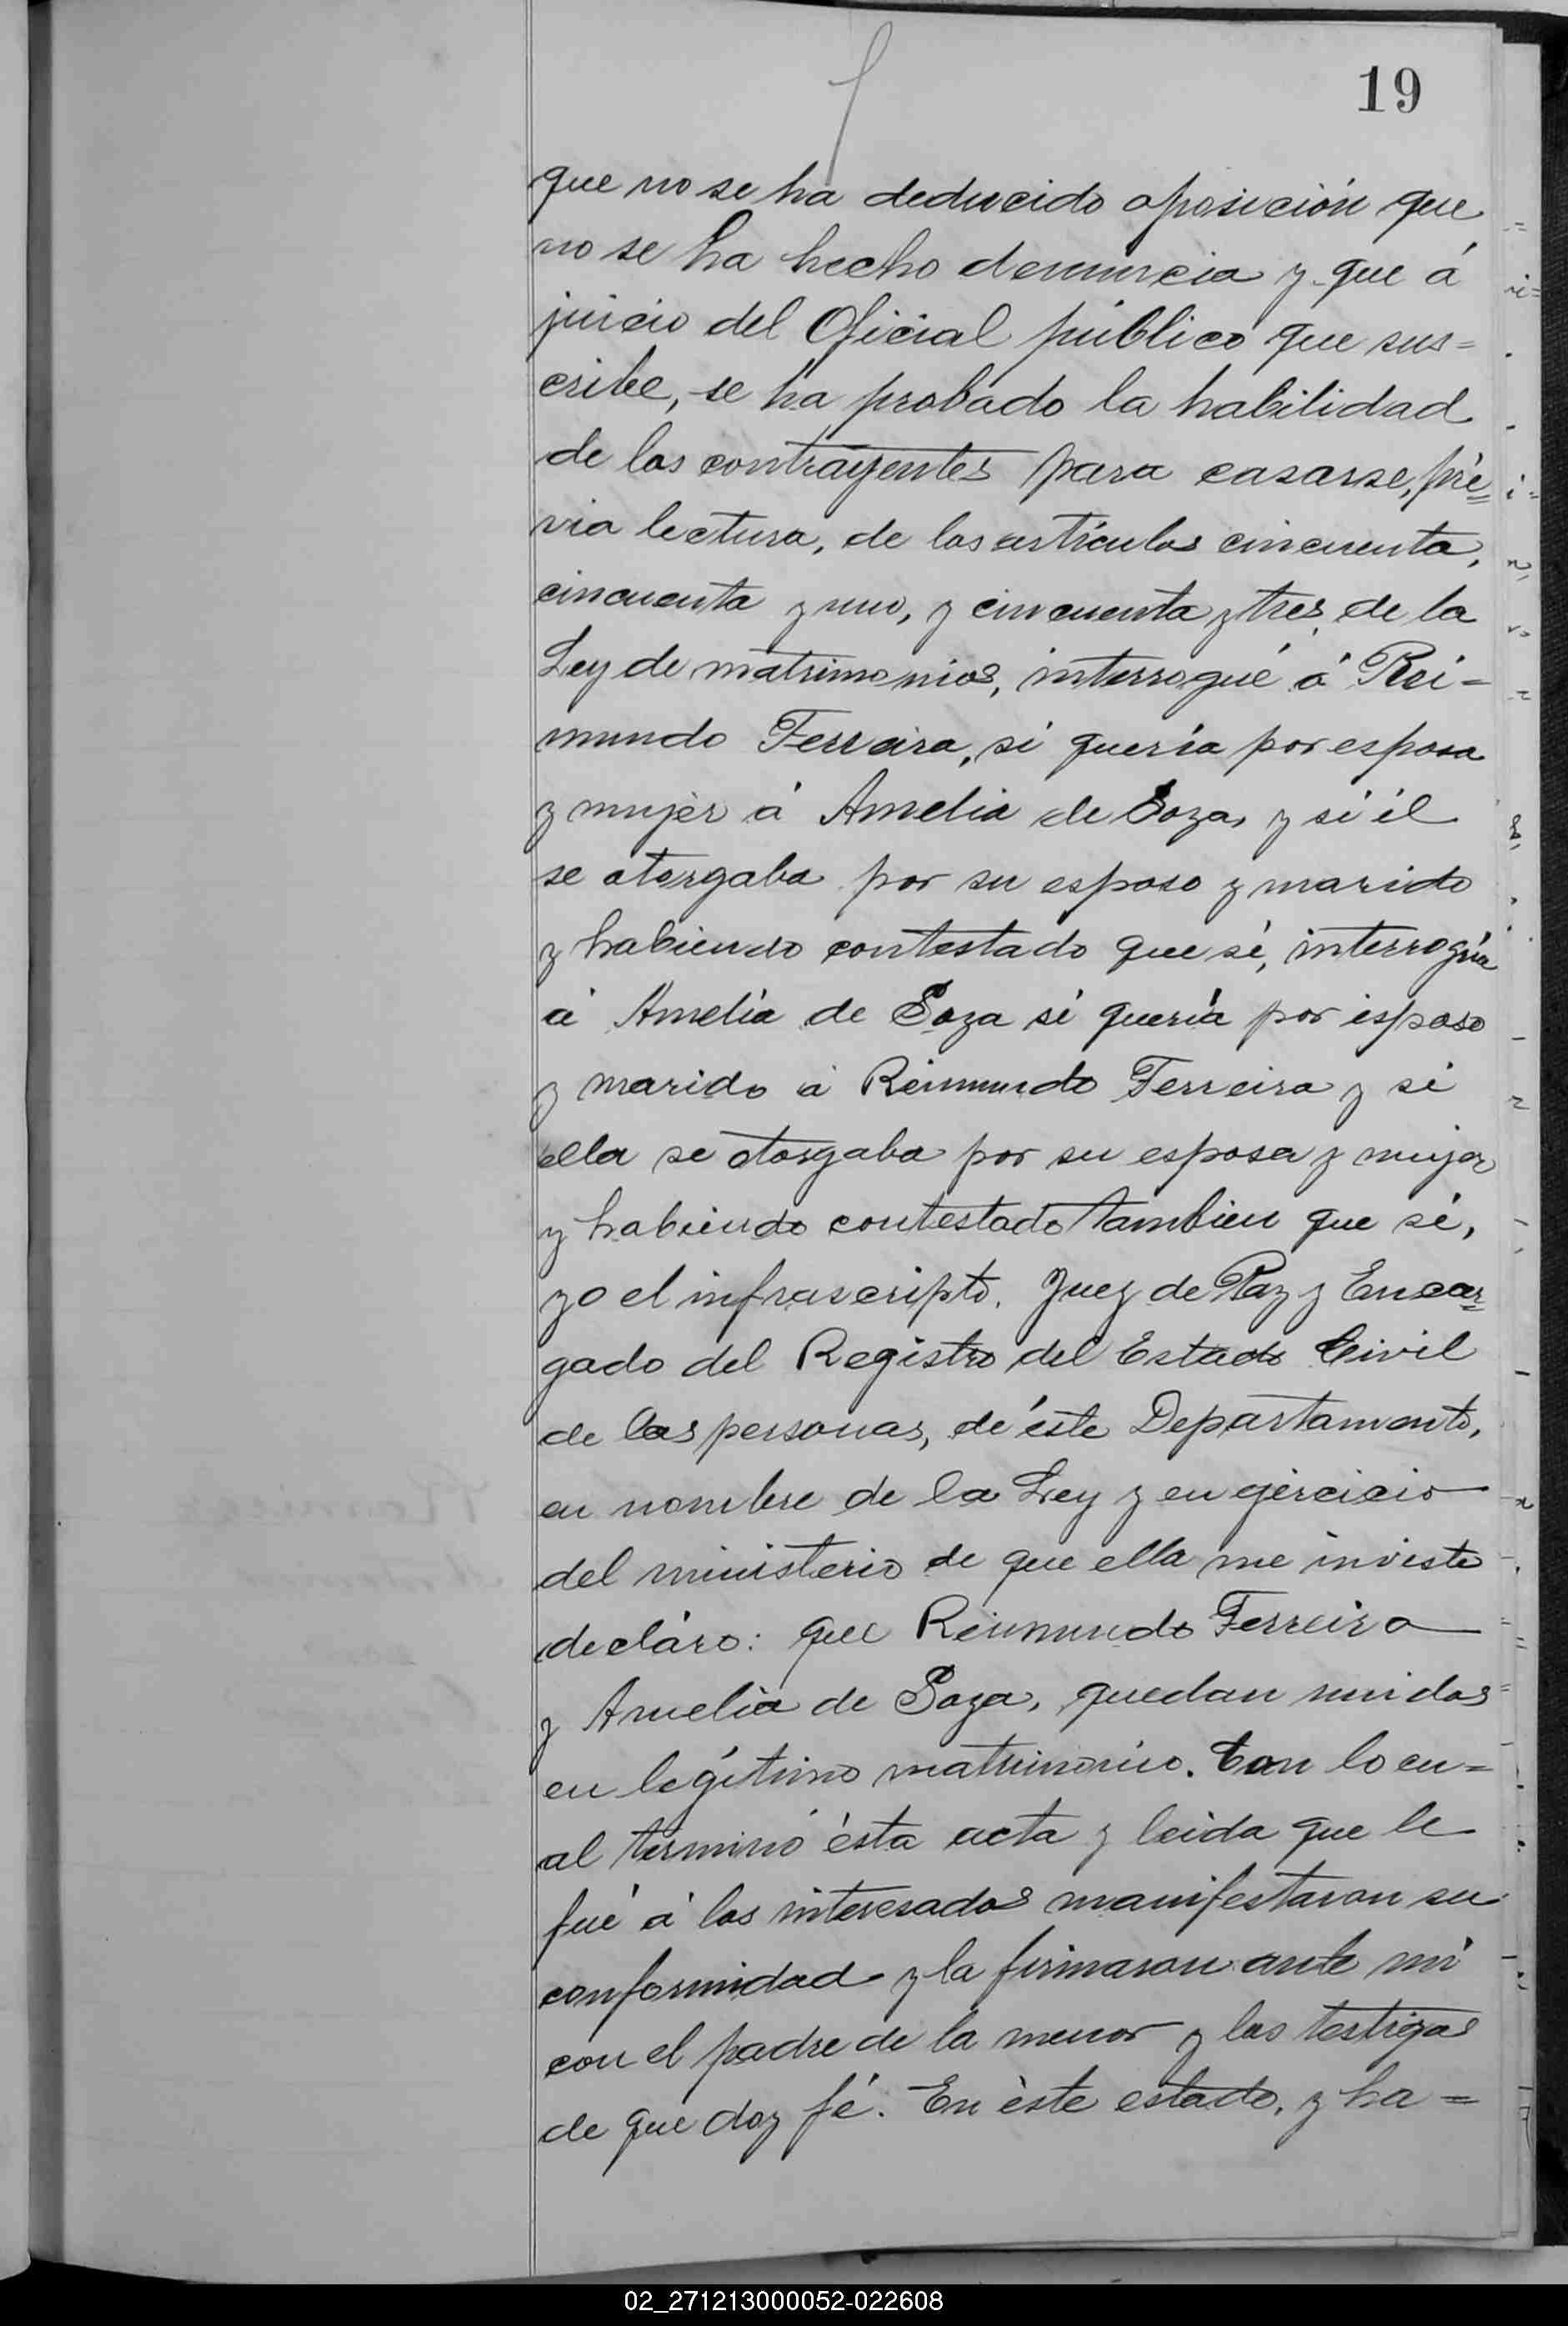 19
que no se ha deducido oposición que
no se ha hecho denuncia y que á
juicio del Oficial público que sus=
cribe, se ha probado la habilidad
de los contrayentes para casarse, pré=
via lectura, de los artículos cincuenta,
cincuenta y uno, y cincuenta y tres de la
Ley de matrimonios, interrogué á Rei=
mundo Ferreira, si quería por esposa
y mujer á Amelia de Soza, y si él
se otorgaba por su esposo y marido
y habiendo contestado que sí, interrogué
á Amelia de Soza si quería por esposo
y marido á Reimundo Ferreira y si
ella se otorgaba por su esposa y mujer
y habiendo contestado tambien que sí,
yo el infrascripto, Juez de Paz y Encar=
gado del Registro del Estado Civil
de las personas, de éste Departamento,
en nombre de la Ley y en ejercicio
del ministerio de que ella me inviste
decláro: que Reimundo Ferreira
y Amelia de Soza, quedan unidos
en legítimo matrimonio. Con lo cu=
al terminó ésta acta y leida que le
fué á los interesados manifestaron su
conformidad y la firmaron ante mí
con el padre de la menor y los testigos
de que doy fé. En éste estado, y ha=
02_271213000052-022608